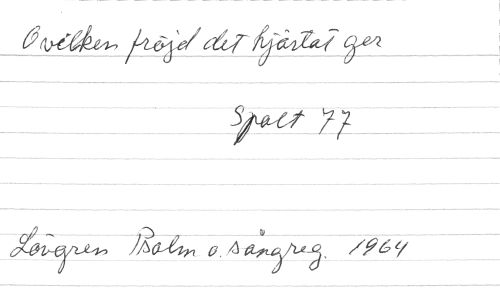 O vilken fröjd det hjärtat ger
Spalt 77
Lövgren Psalm o. sångreg. 1964